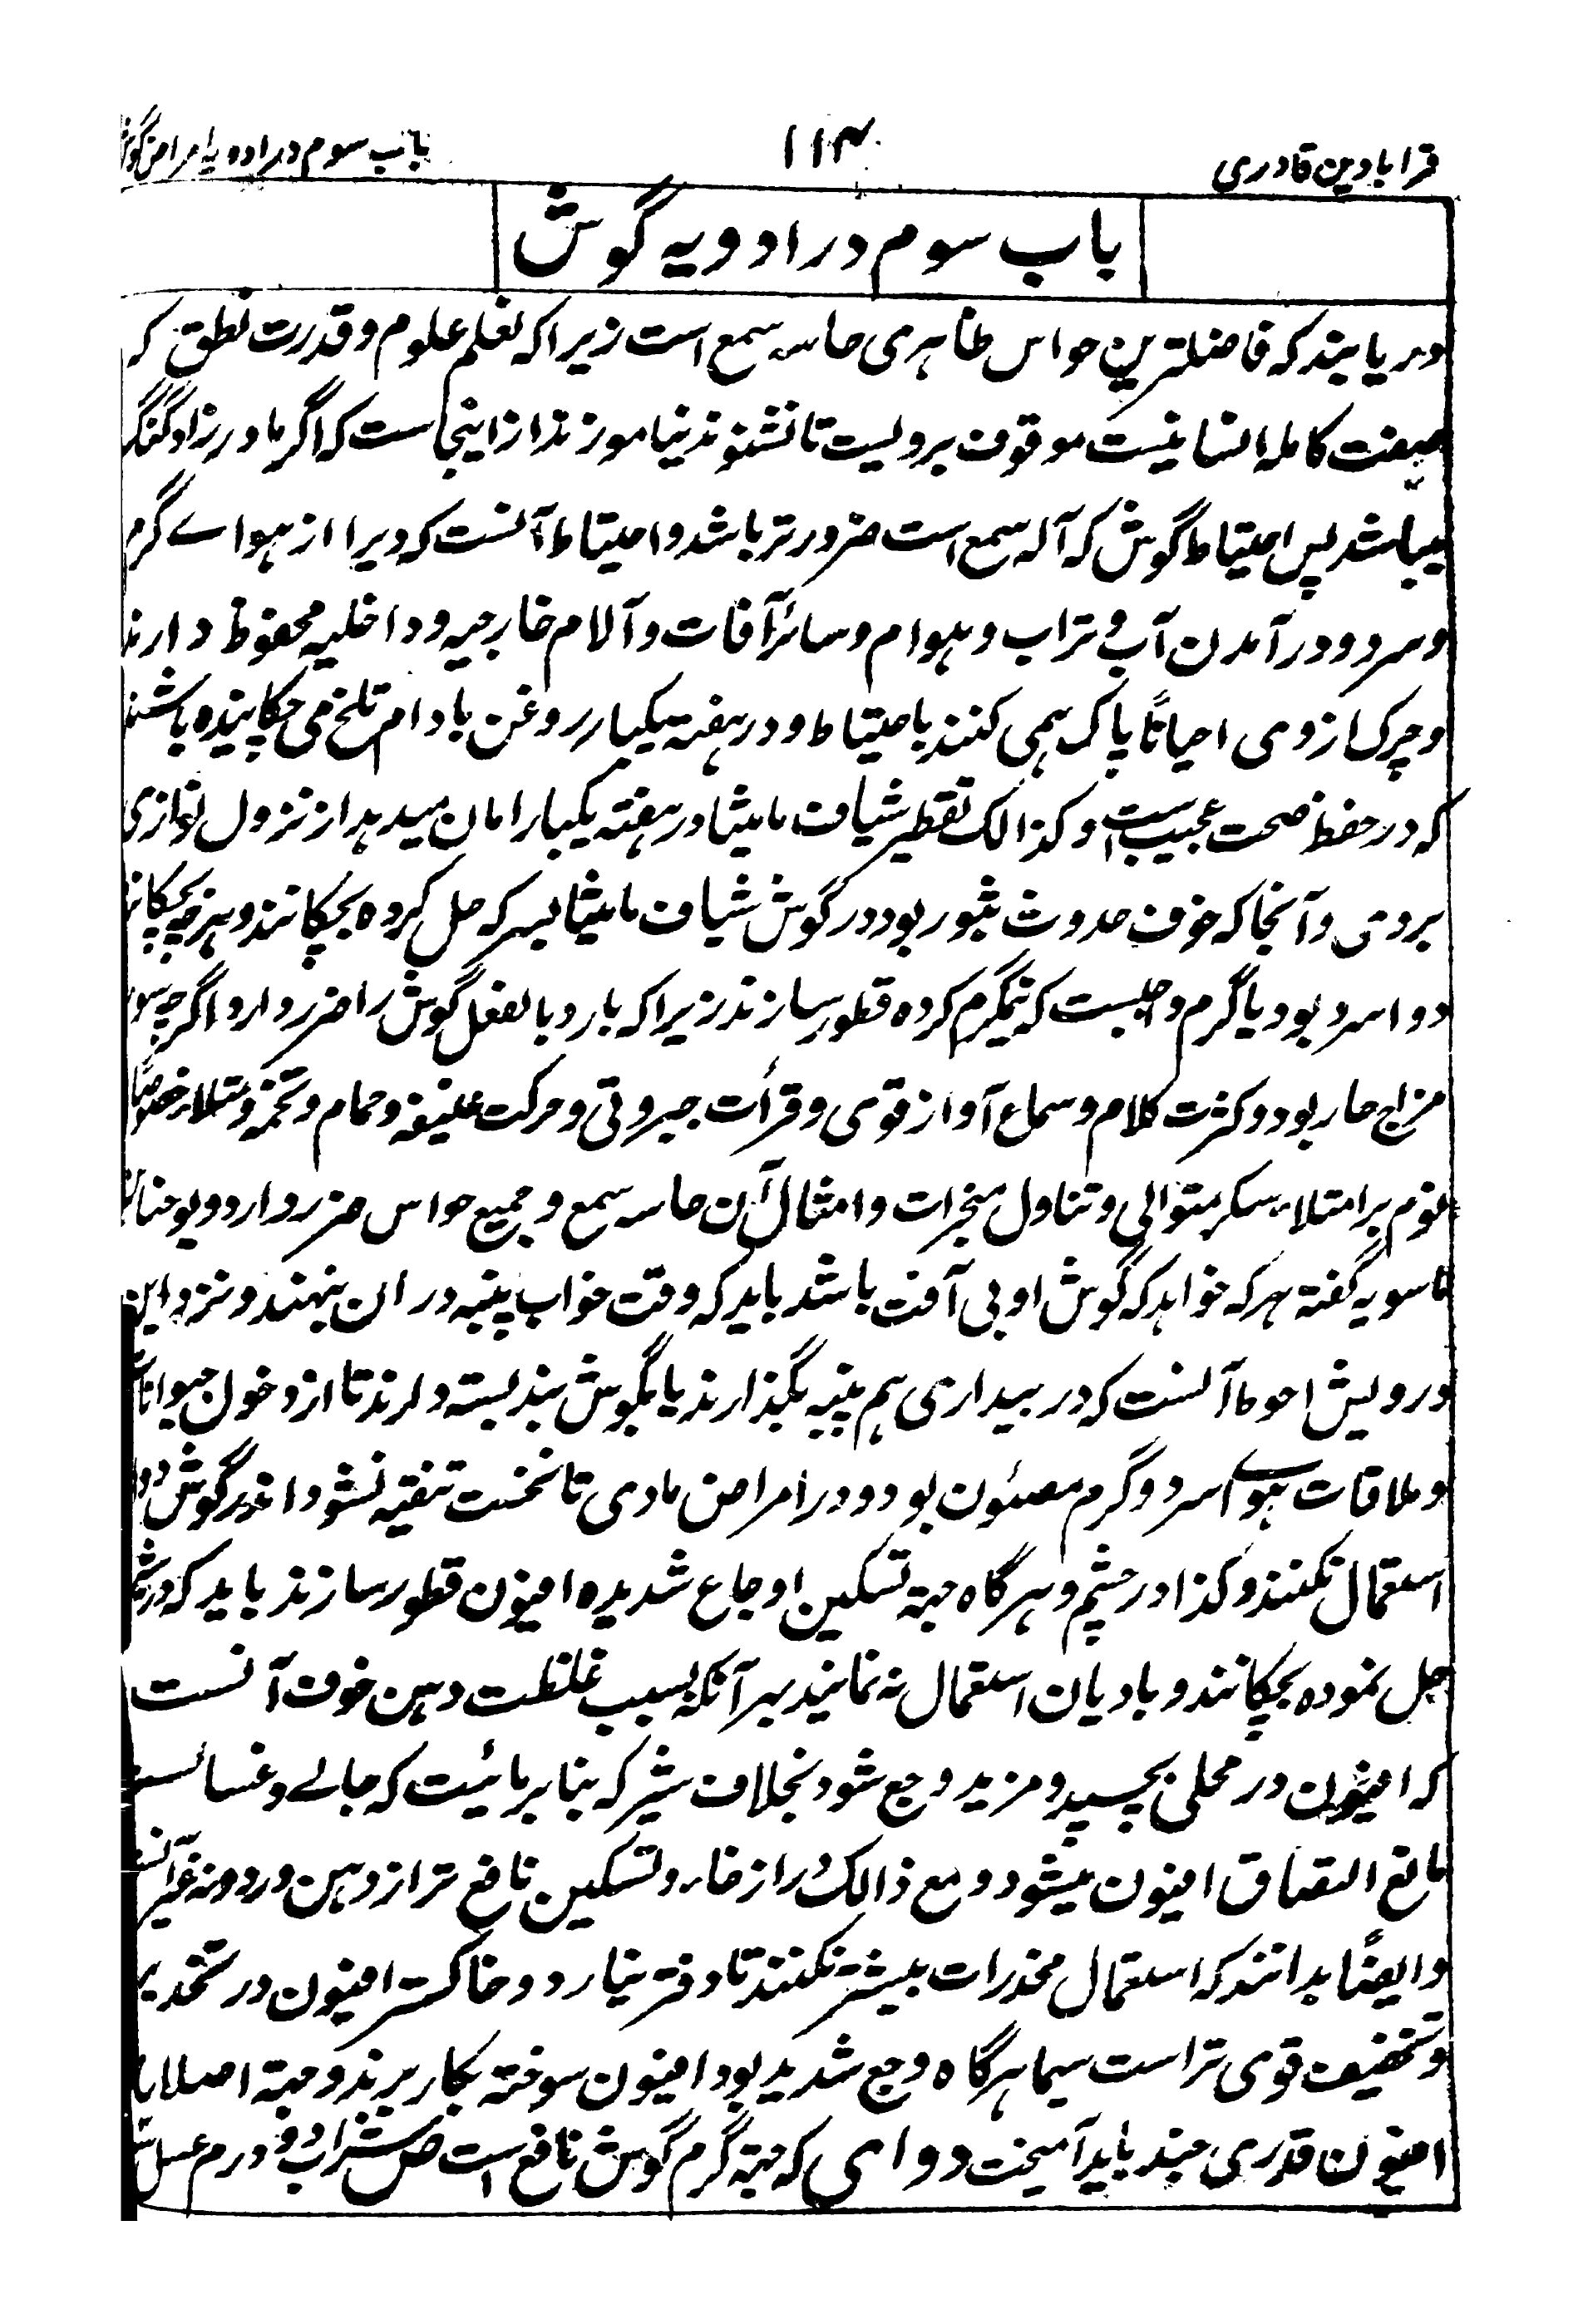 قرابادین قادری
۱۱۴
باب سوم در ادویه امراض گوش
باب سوم در ادویه گوش
دریابیند که فاضلترین حواس ظاهری حاسه سمع است زیرا که تعلم علوم و قدرت نطق کہ
صفت کامله انسانیست موقوف برویست تا نشنوند نیاموزند از اینجاست که اگر مادرزاد گنگ
میباشد پس احتیاط گوش که آله سمع است ضرورتر باشد و احتیاط آنست که ویرا از هوای گرم
و سرد و در آمدن آب و تراب و هوام و سائر آفات و آلام خارجیه و داخلیه محفوظ دارند
و چرک از وی احیاناً پاک همی کنند باحتیاط و در هفته یکبار روغن بادام تلخ می چکانیده باشند
که در حفظ صحت عجیب است و کذالک تقطیر شیاف مامیثا در هفته یکبار امان میدهد از نزول نوازل
بروی و آنجا که خوف حدوث بثور بود در گوش شیاف مامیثا بسرکه حل کرده بچکانند و هرچه بچکانند
دوا سرد بود یا گرم واجبست که نیمگرم کرده قطور سازند زیرا که بارد بالفعل گوش را ضرر دارد اگرچه سوء
مزاج حار بود و کثرت کلام و سماع آواز قوی و قرأت جبروتی و حرکت عنیفه و حمام و تخمه و امتلاء خصوصاً
نوم بر امتلاء و سکر متوالی و تناول مبخرات و امثال آن حاسه سمع و جمیع حواس ضرر دارد و یوحنا ابن
ماسویه گفته هرکه خواهد که گوش او بی آفت باشد باید که وقت خواب پنبه در ان بنهند و نزد این
درویش احوط آنست که در بیداری هم پنبه بگذارند یا بگوش بند بسته دارند تا از دخول حیوانات
و ملاقات هوای سرد و گرم مصئون بود و در امراض مادی تا نخست تنقیه نشود اندر گوش دوا
استعمال نکنند و کذا در چشم و هرگاه جهة تسکین اوجاع شدیده افیون قطور سازند باید که در شیر
حل نموده بچکانند و بادیان استعمال نه نمایند بهر آنکه بسبب غلظت دهن خوف آنست
که افیون در محلی بچسپد و مزید وجع شود بخلاف شیر که بنا بر مائیت که جالی و غسال است
مانع التصاق افیون میشود و مع ذالک در ارخاء و تسکین نافع تر از دهن و روغن غیر آنست
و ایضاً بدانند که استعمال مخدرات بیشتر نکنند تا وقر نیارد و خاکستر افیون در تخدیر
و تخفیف قوی تر است سیما هرگاه وجع شدید بود افیون سوخته بکار برند و جهة اصلاح
افیون قدری جند باید آمیخت دوای که جهة گرم گوش نافع است ص شراب دو درم عسل